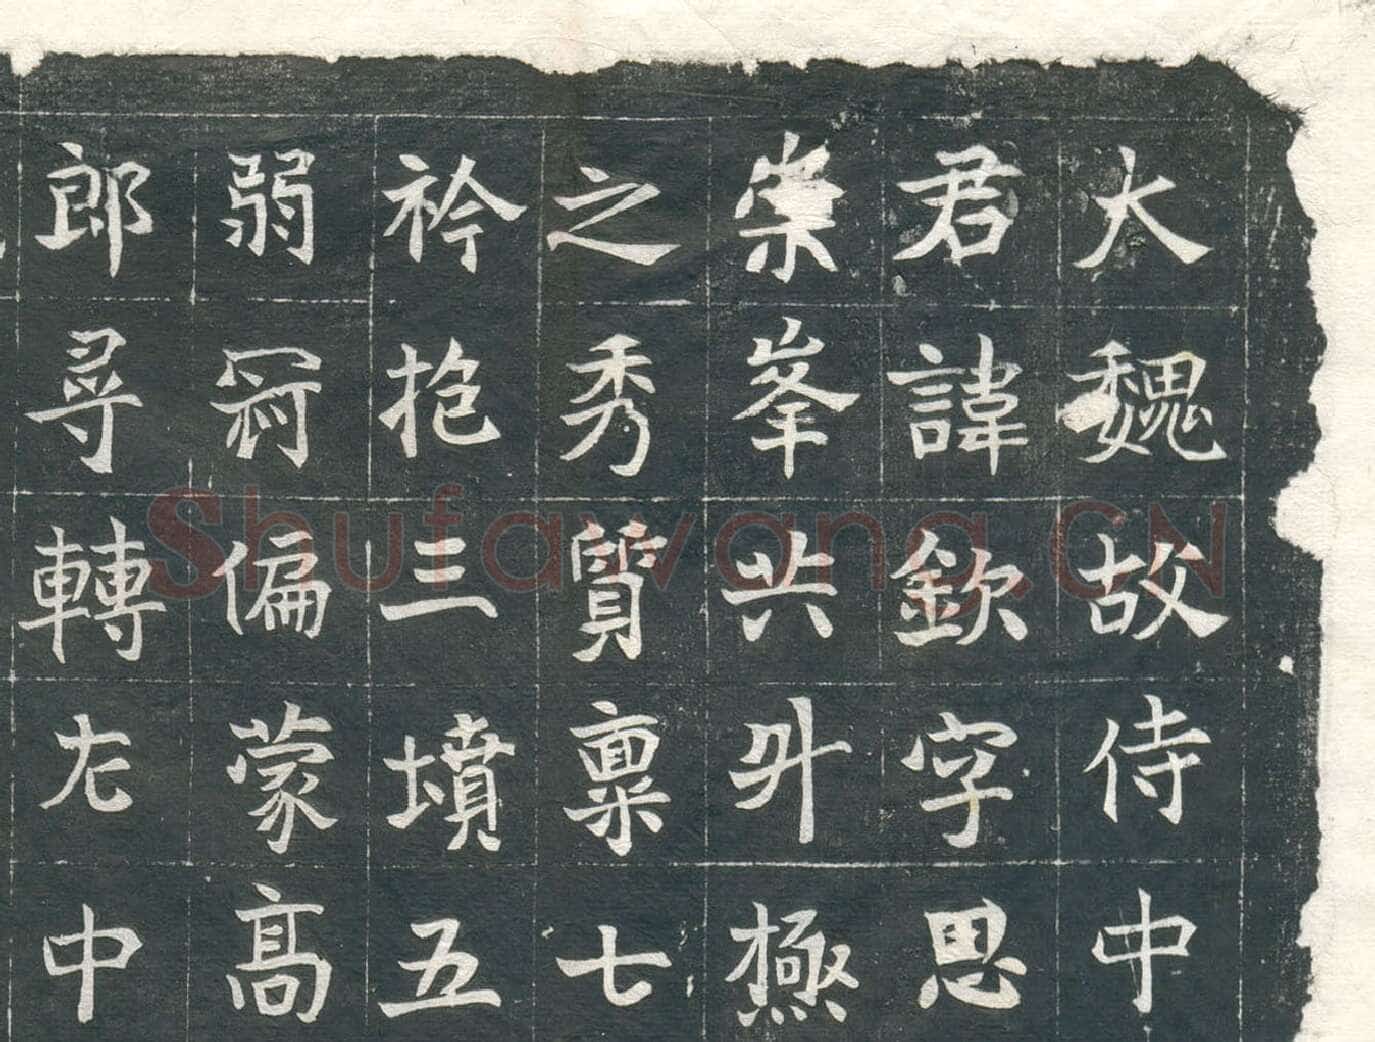 大魏故侍中
君諱欽字思
崇峯共升極
之秀質稟七
衿抱三墳五
弱冠偏蒙高
郎尋轉左中
Shufawang.CN